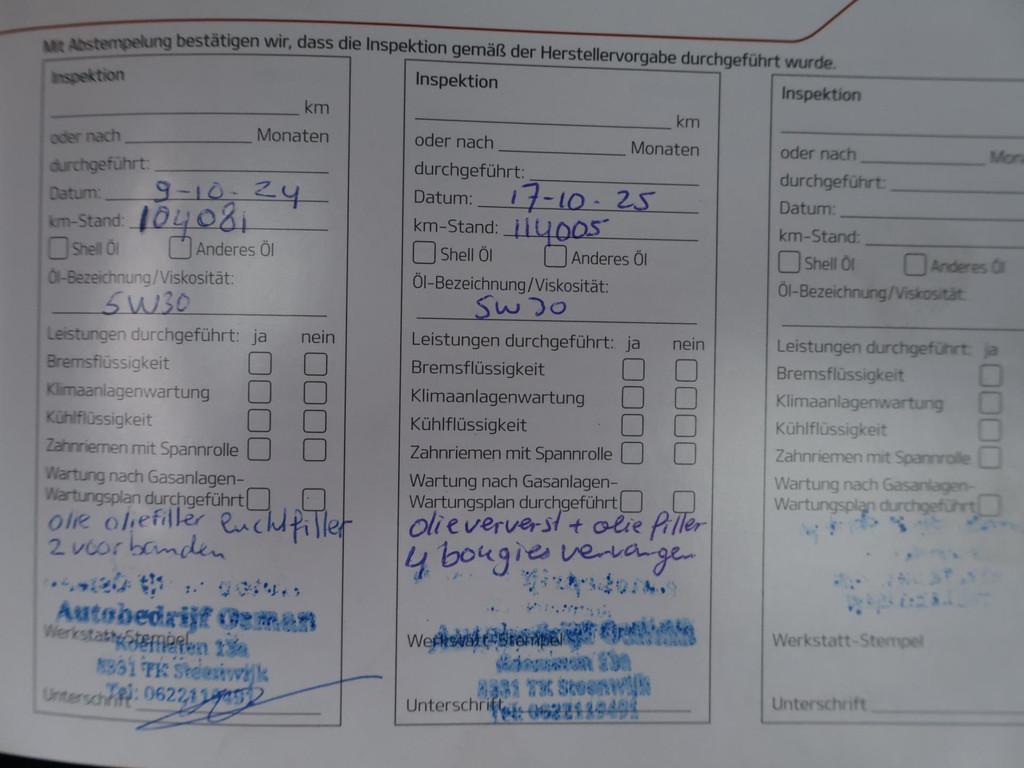 Mit Abstempelung bestätigen wir, dass die Inspektion gemäß der Herstellervorgabe durchgeführt wurde.
Inspektion
km
oder nach Monaten
durchgeführt:
Datum: 9-10-24
km-Stand: 104081
Shell Öl Anderes Öl
Öl-Bezeichnung/Viskosität:
5W30
Leistungen durchgeführt: ja nein
Bremsflüssigkeit
Klimaanlagenwartung
Kühlflüssigkeit
Zahnriemen mit Spannrolle
Wartung nach Gasanlagen-
Wartungsplan durchgeführt
olie oliefilter luchtfilter
2 voorbanden
Autobedrijf Osman
Werkstatt-Stempel
8331 TK Steenwijk
Unterschrift Tel: 0622119491
Inspektion
km
oder nach Monaten
durchgeführt:
Datum: 17-10-25
km-Stand: 114005
Shell Öl Anderes Öl
Öl-Bezeichnung/Viskosität:
5W30
Leistungen durchgeführt: ja nein
Bremsflüssigkeit
Klimaanlagenwartung
Kühlflüssigkeit
Zahnriemen mit Spannrolle
Wartung nach Gasanlagen-
Wartungsplan durchgeführt
olie ververst + olie filler
4 bougies vervangen
Werkstatt-Stempel
8331 TK Steenwijk
Unterschrift Tel: 0622119491
Inspektion
oder nach
durchgeführt:
Datum:
km-Stand:
Shell Öl Anderes Öl
Öl-Bezeichnung/Viskosität:
Leistungen durchgeführt: ja
Bremsflüssigkeit
Klimaanlagenwartung
Kühlflüssigkeit
Zahnriemen mit Spannrolle
Wartung nach Gasanlagen-
Wartungsplan durchgeführt
Werkstatt-Stempel
Unterschrift